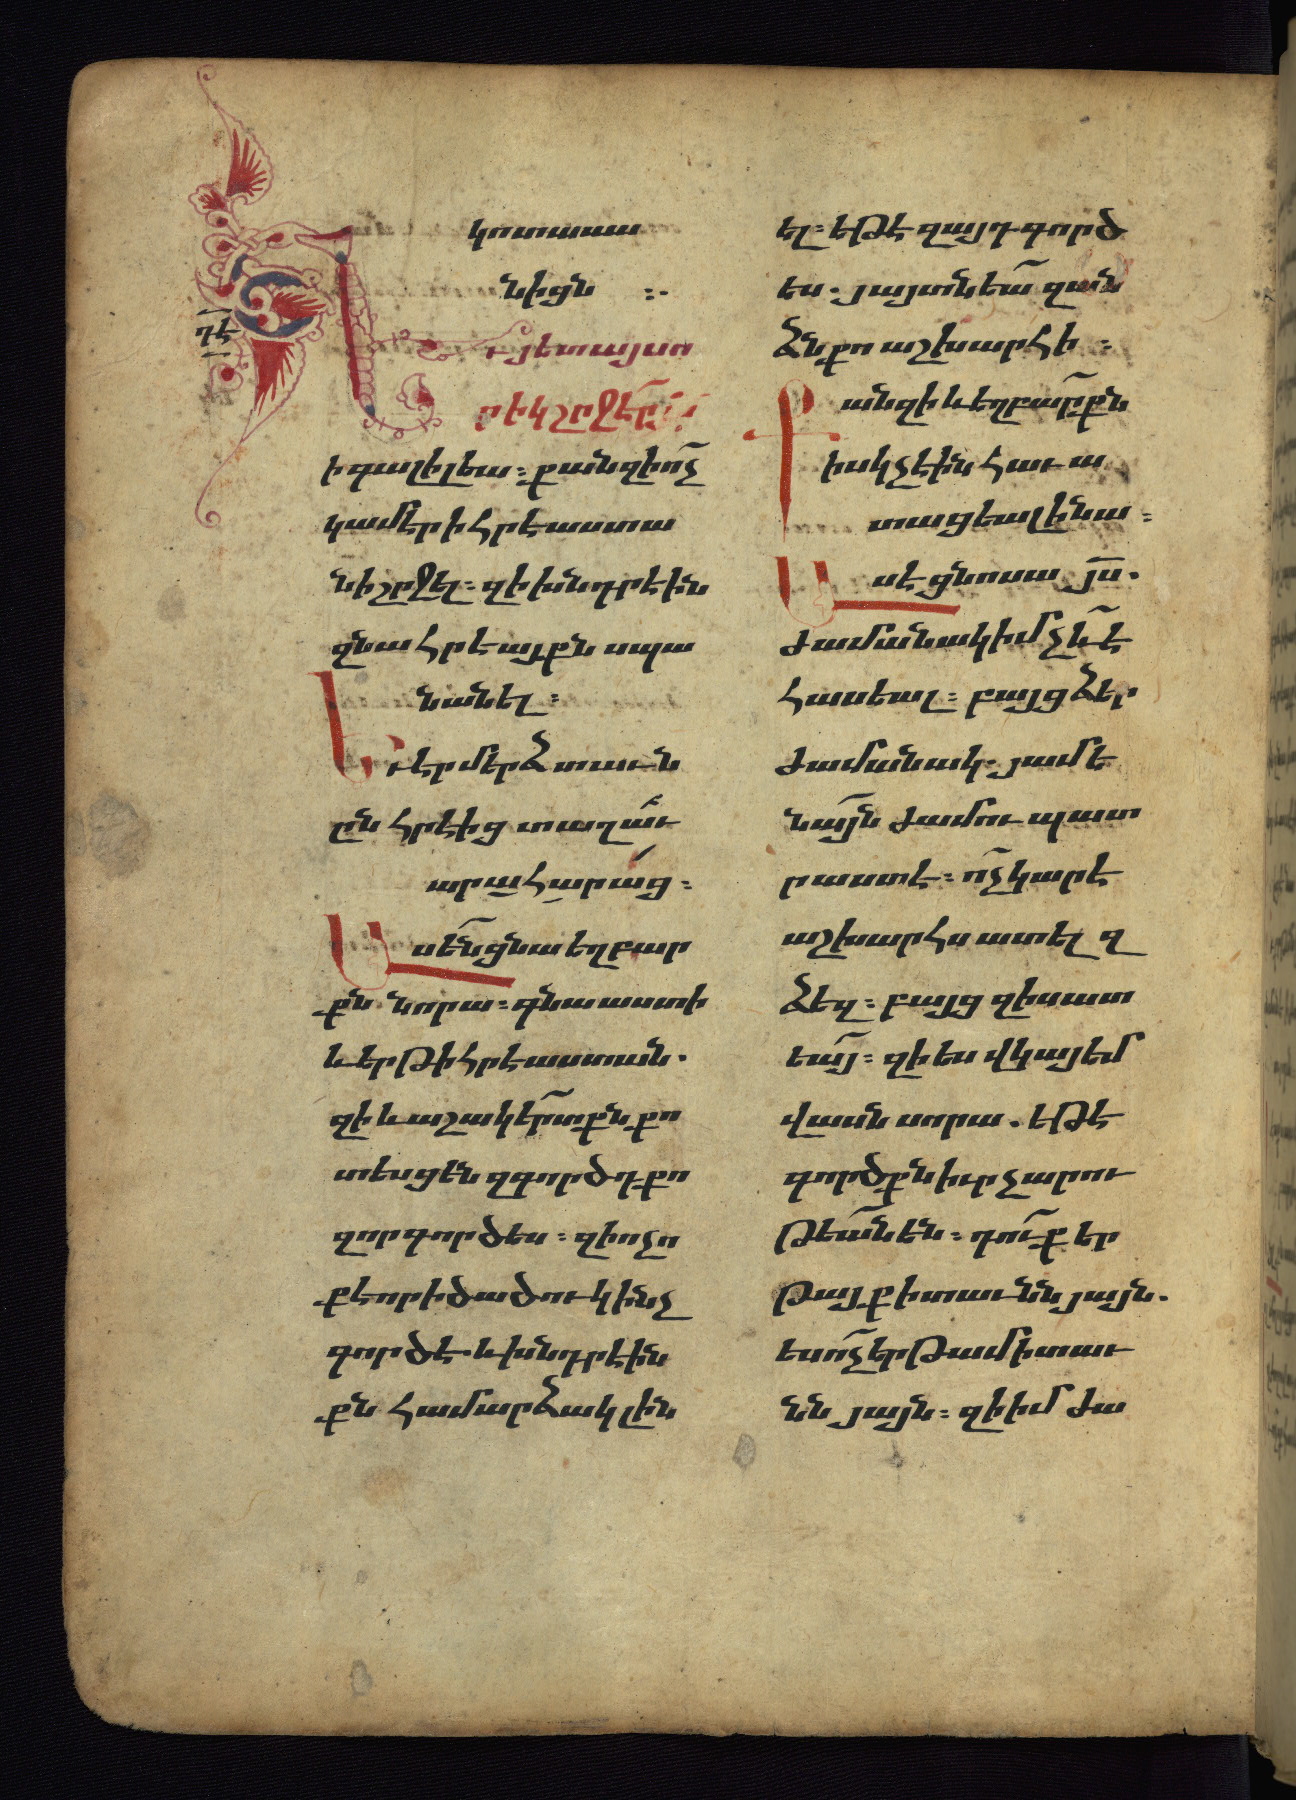 կոտասա
նիցն :.
Եւ յետ այսո
րիկ շրջէր յս
ի գալիլեա : քանզի ոչ
կամէր ի հրէաստա
նի շրջել : զի խնդրէին
զնա հրէայքն սպա
նանել :
Եւ էր մերձ տաւն
ըն հրէից տաղաւ
արահարաց :
Ասեն ցնա եղբար
քն նորա : գնա աստի
և երթ ի հրէաստան .
զի և աշակերտքն քո
տեսցեն զգործդ քո
զոր գործես : զի ոչ ո
ք է որ ի ծածուկ ինչ
գործէ և խնդրէ ին
քն համարձակ լին
դէ
ել : եթէ զայդ գործ
ես . յայտնեա զան
ձն քո աշխարհի :
Քանզի և եղբարքն
իսկ չէին հաւա
տացեալ ի նա :
Ասէ ցնոսա յս .
ժամանակ իմ չև է
հասեալ : բայց ձեր
ժամանակ . յամե
նայն ժամու պատ
րաստ է : ոչ կարէ
աշխարհս ատել զ
ձեզ : բայց զիս ատ
եայ : զի ես վկայեմ
վասն սորա . եթէ
գործքն իւր չարու
թեան են : դուք եր
թայք ի տաւնն յայն .
ես ոչ երթամ ի տաւ
նն յայն : զի իմ ժա